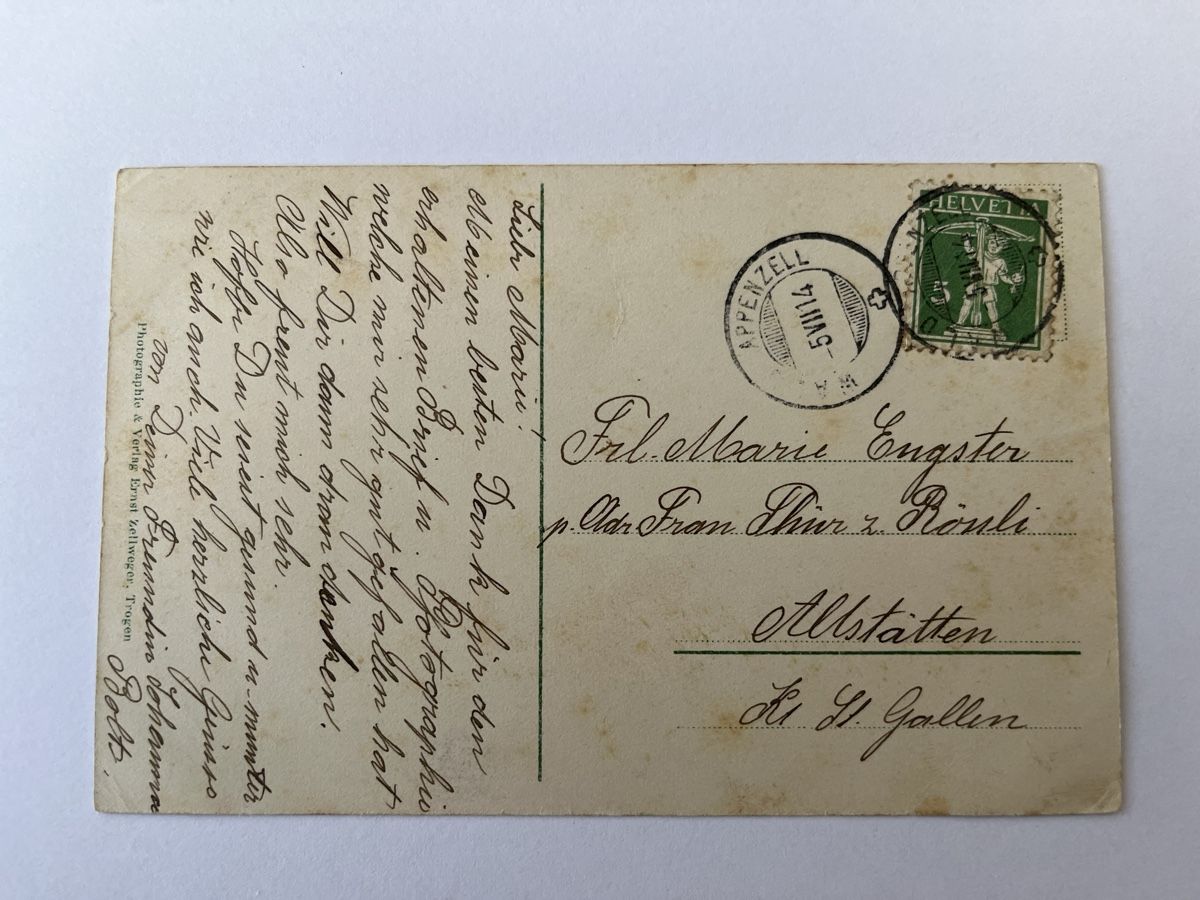 Liebe Marie!
Meinen besten Dank für den
erhaltenen Brief u. Photographie
welche mir sehr gut gefallen hat
Will Dir dann dran denken.
Also freut mich sehr.
Hoffe Du seiest gesund u. munter
wie ich auch. Viele herzliche Grüsse
von Deiner Freundin Johanna
Bolt.
Photographie & Verlag Ernst Zellweger, Trogen
HELVETIA
APPENZELL
-5 VII 14
Frl. Marie Engster
p. Adr. Frau Thür z. Rössli
Altstätten
Kt. St. Gallen